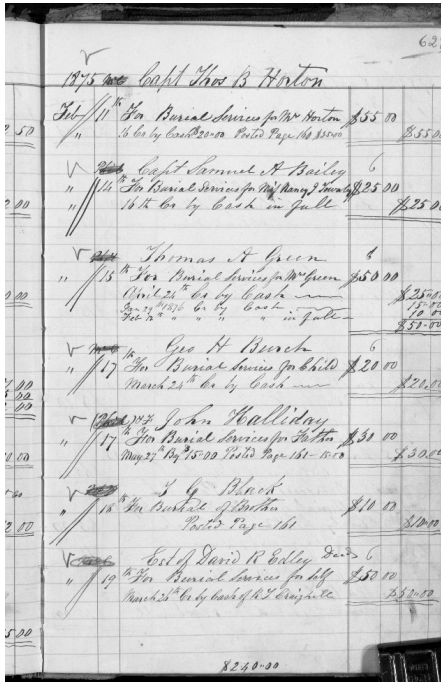 62
1875 Capt Thos B Horton
Feb 11th For Burial Services for Mr Horton $55 00
16 Cr by Cash $20-00 Posted Page 160 $35-00 $55 0
Capt Samuel A Bailey 6
" 14th For Burial Services for Nancy J $25 00
16th Cr by Cash in full $25 0
Thomas A Green 6
" 15th For Burial Services for Mr Green $50 00
April 24th Cr by Cash $25-00
Jan 29th 1876 Cr by Cash 15-00
Feb " " " " in full 10 00
$50-00
Geo H Burch 6
" 17th For Burial Services for Child $20 00
March 24th Cr by Cash $20-00
John Halliday
" 17th For Burial Services for Father $30 00
May 27th By $15-00 Posted Page 161 - 15-00 $30.00
G Black
" 18th For Burial of Brother $10 00
Posted Page 161 $10-00
Est of David R Edley Decd 6
" 19th For Burial Services for Self $50 00
March 26th Cr by Cash of R T Craighill $50-00
$240-00